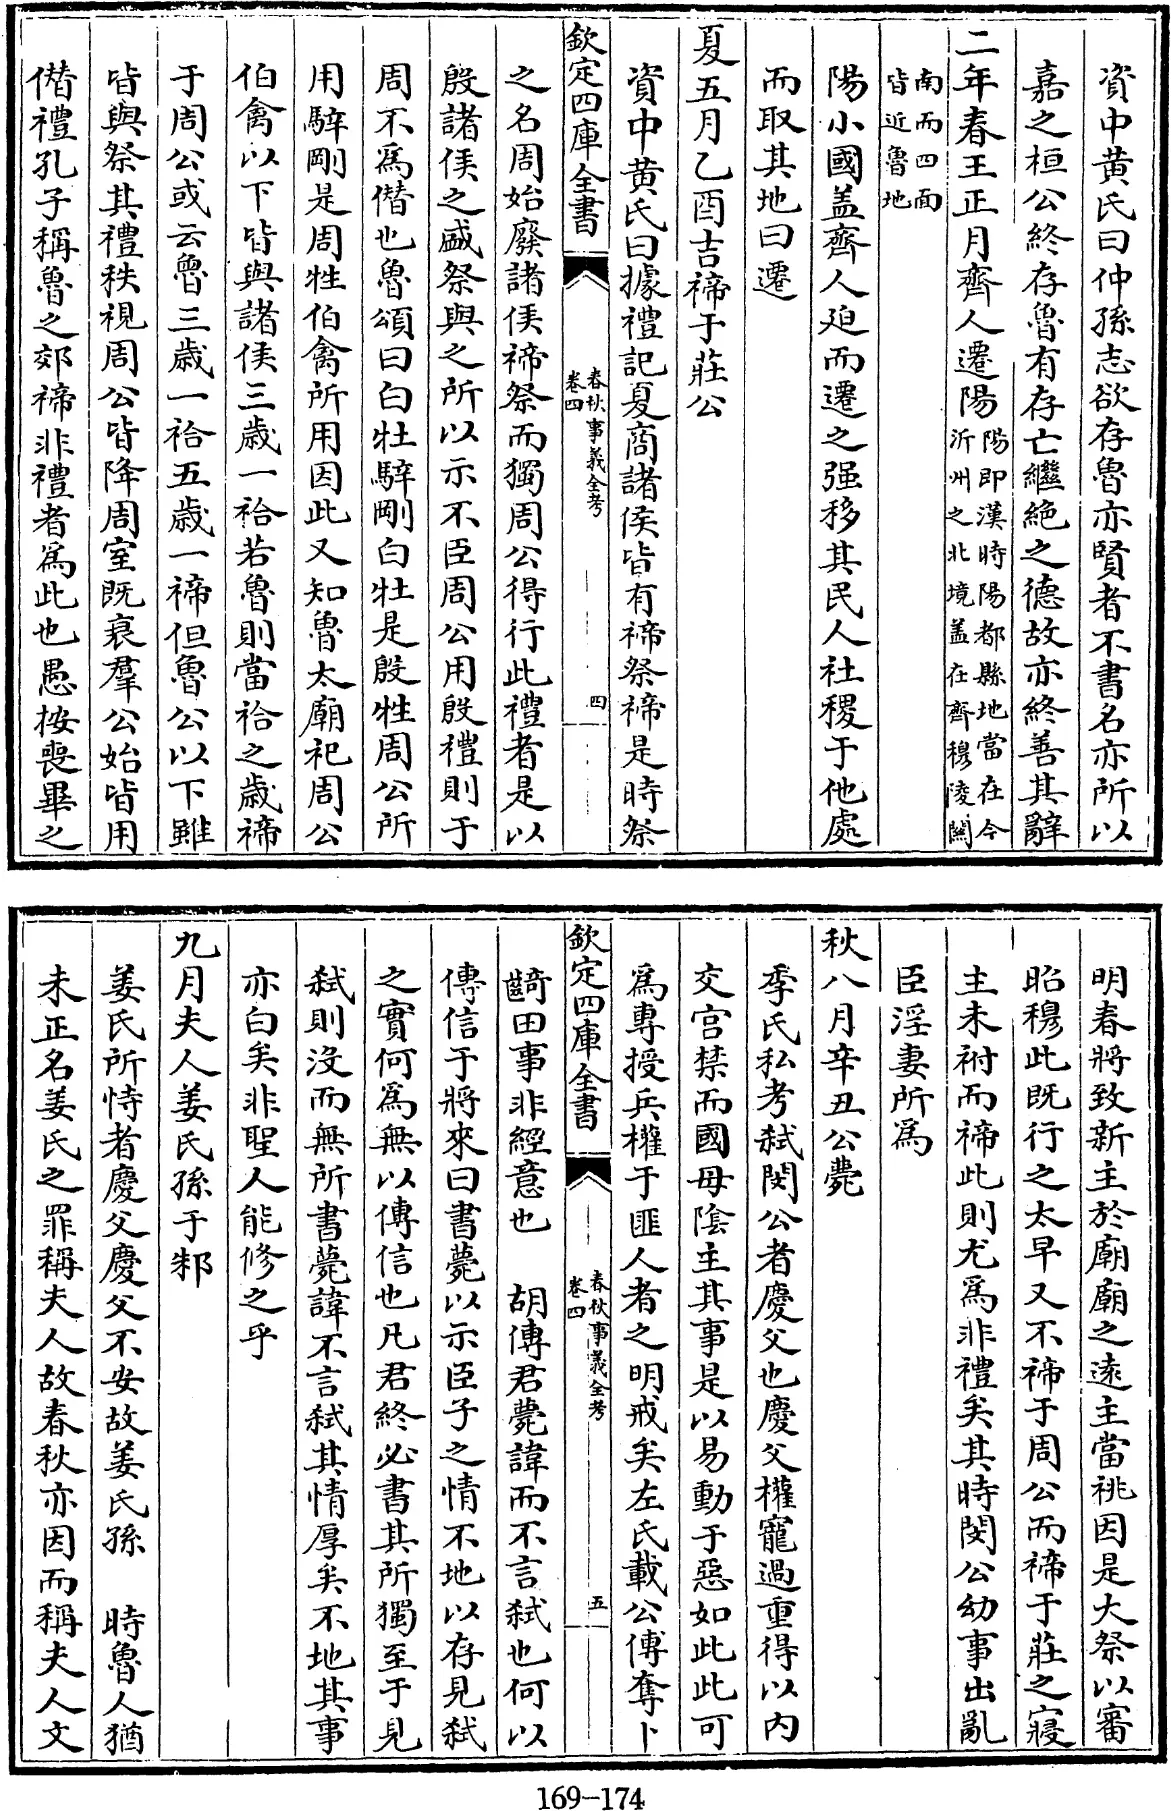 資中黄氏曰仲孫志欲存魯亦賢者不書名亦所以
嘉之桓公終存魯有存亡繼絶之德故亦終善其辭
二年春王正月齊人遷陽陽即漢時陽都縣地當在今
沂州之北境盖在齊穆陵關
南而四面
皆近魯地
陽小國盖齊人廹而遷之强移其民人社稷于他處
而取其地曰遷
夏五月乙酉吉禘于莊公
資中黄氏曰據禮記夏商諸侯皆有禘祭禘是時祭
欽定四庫全書
春秋事義全考
卷四
四
之名周始廢諸侯禘祭而獨周公得行此禮者是以
殷諸侯之盛祭與之所以示不臣周公用殷禮則于
周不為僭也魯頌曰白牡騂剛白牡是殷牲周公所
用騂剛是周牲伯禽所用因此又知魯太廟祀周公
伯禽以下皆與諸侯三歲一祫若魯則當祫之歲禘
于周公或云魯三歲一祫五歲一禘但魯公以下雖
皆與祭其禮秩視周公皆降周室既衰羣公始皆用
僭禮孔子稱魯之郊禘非禮者為此也愚按喪畢之
明春將致新主於廟廟之逺主當祧因是大祭以審
昭穆此既行之太早又不禘于周公而禘于莊之寢
主未祔而禘此則尤為非禮矣其時閔公幼事出亂
臣淫妻所為
秋八月辛丑公薨
季氏私考弑閔公者慶父也慶父權寵過重得以内
交宫禁而國母陰主其事是以易動于惡如此此可
為專授兵權于匪人者之明戒矣左氏載公傅奪卜
欽定四庫全書
春秋事義全考
卷四
五
齮田事非經意也　胡傳君薨諱而不言弑也何以
傳信于將來曰書薨以示臣子之情不地以存見弑
之實何為無以傳信也凡君終必書其所獨至于見
弑則沒而無所書薨諱不言弑其情厚矣不地其事
亦白矣非聖人能修之乎
九月夫人姜氏孫于邾
姜氏所恃者慶父慶父不安故姜氏孫　時魯人猶
未正名姜氏之罪稱夫人故春秋亦因而稱夫人文
169-174